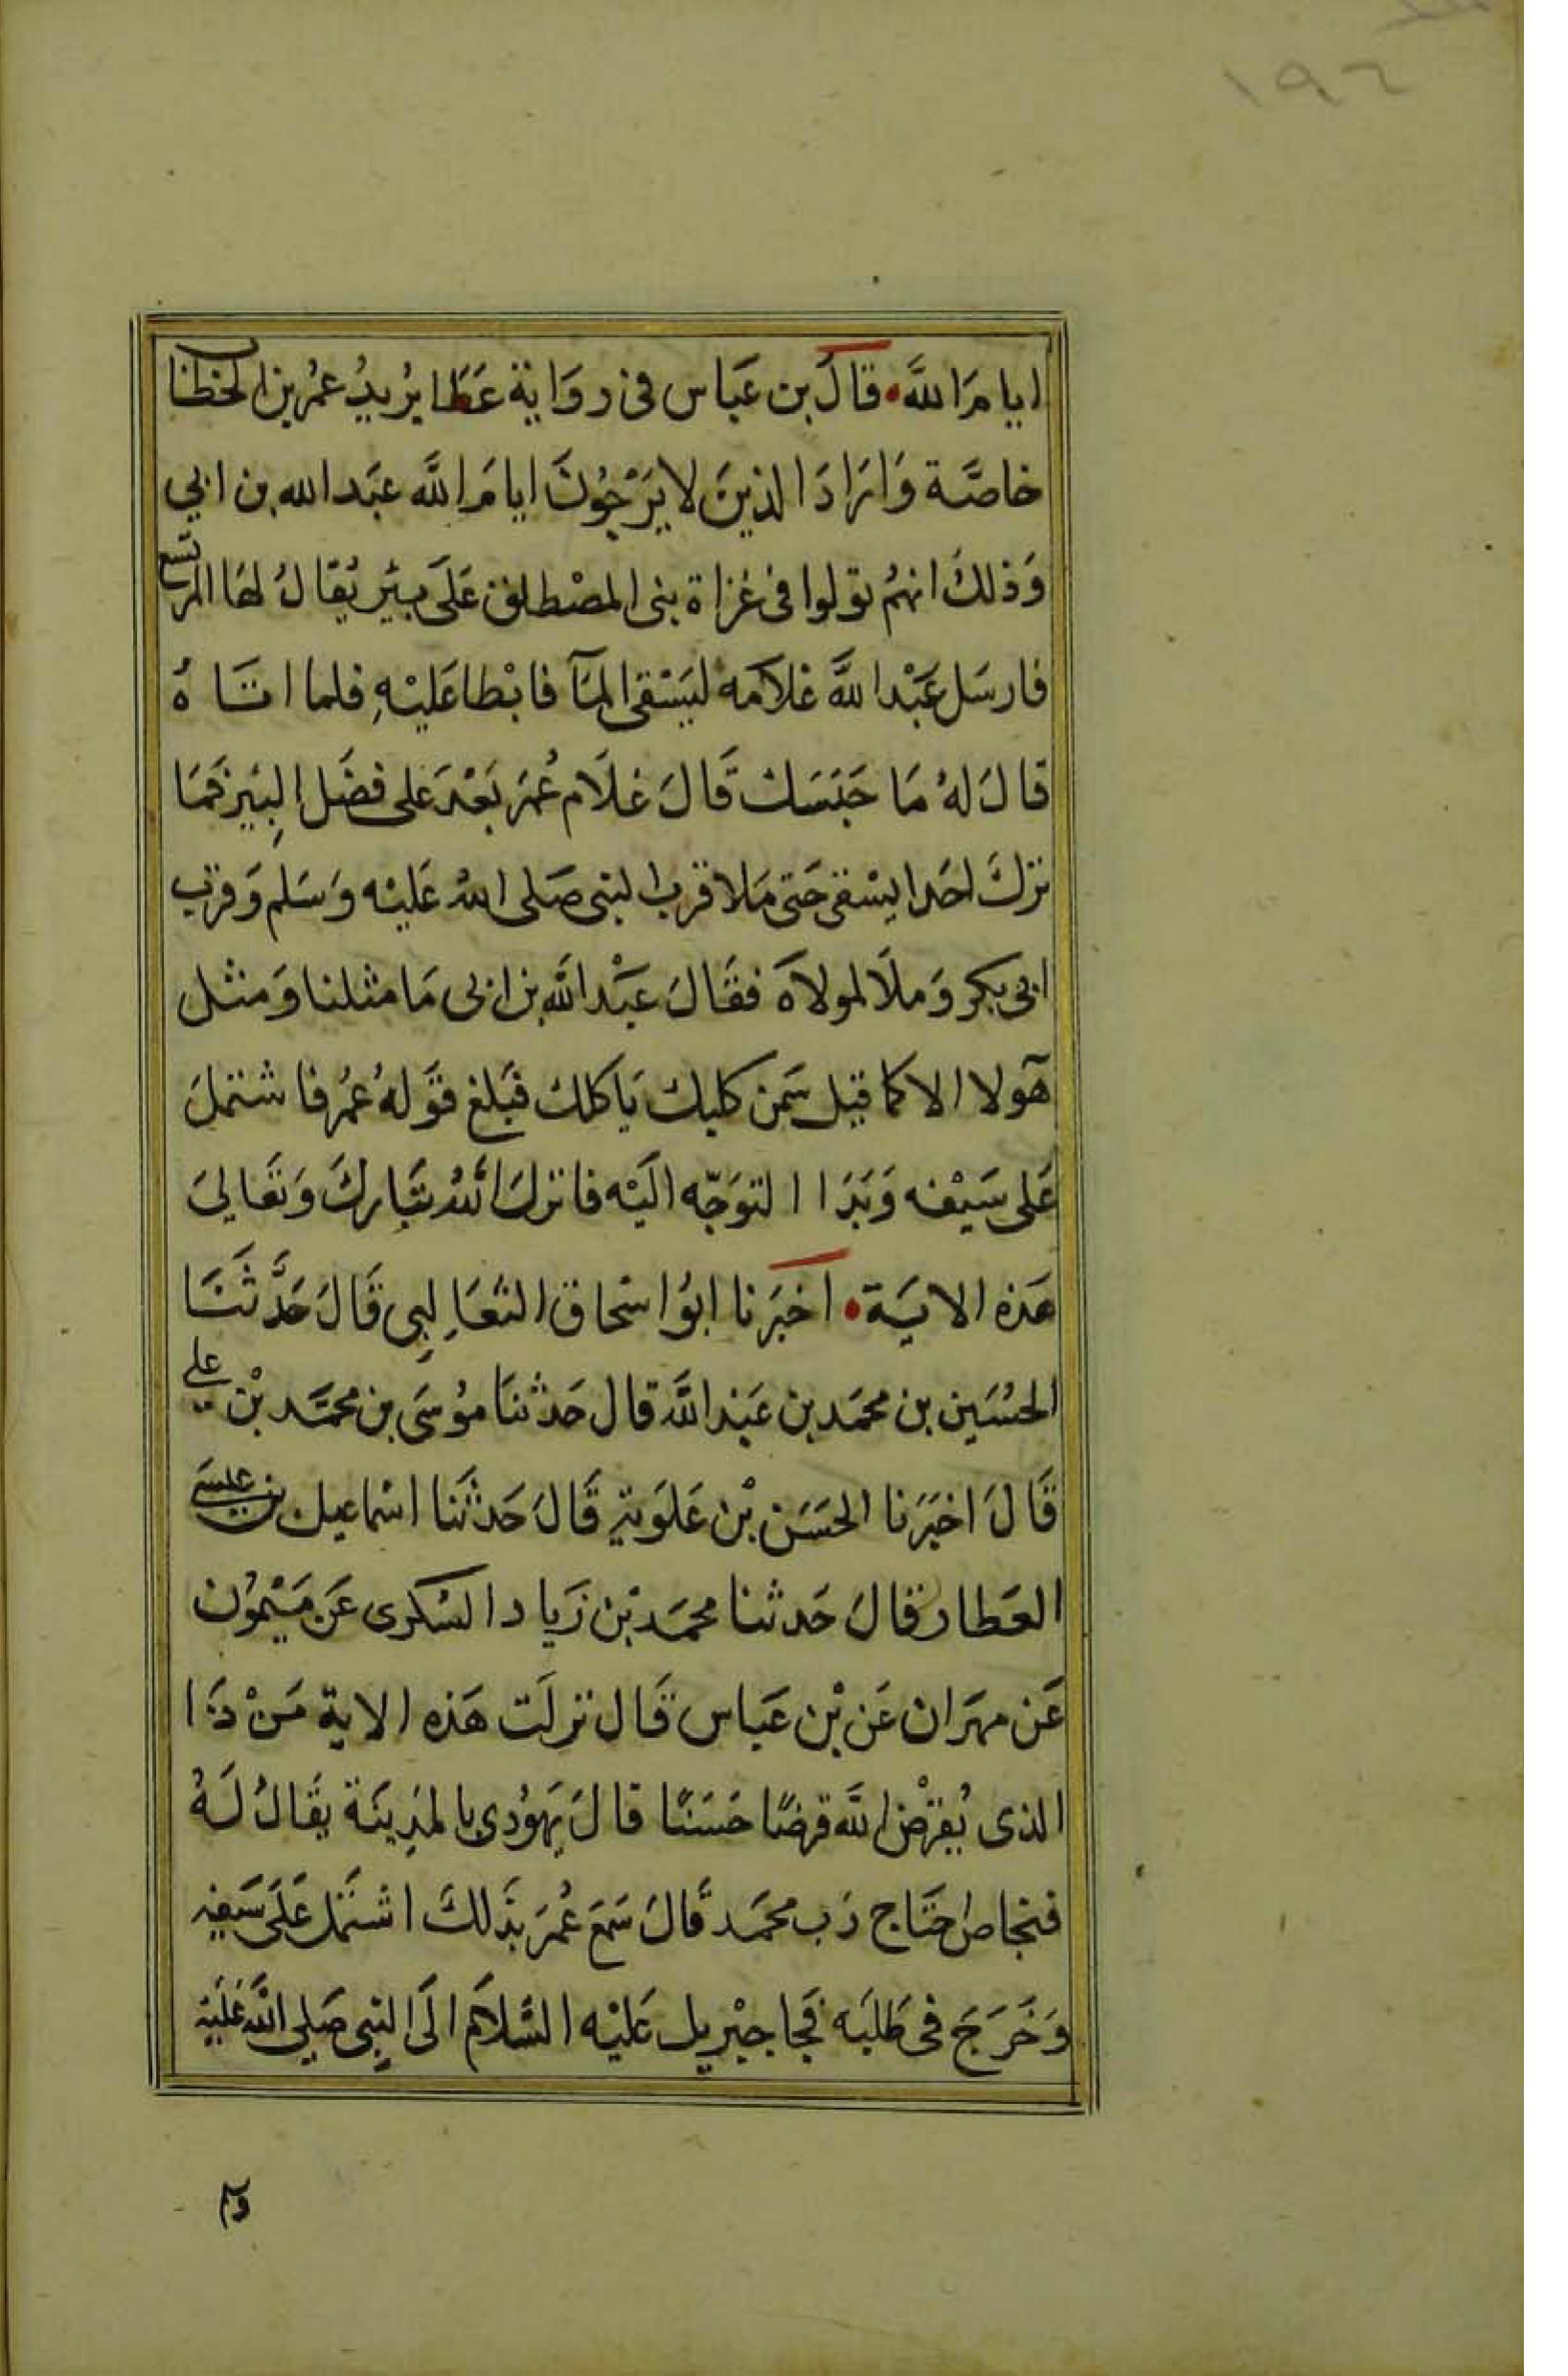 ١٩٦
ايامَ اللَّه قالَ بن عبَاس فى روَاية عَطَا يرُيدُ عمُر بن الخطاب
خاصَّة وَارَادَ الذينَ لا يَرْجُونَ ايامَ اللَّه عبَد الله بن ابي
وَذلكَ انهمُ نولوا فى غزاة بنى المصْطلق عَلَى بئير يُقالُ لهَا المريسع
فارسَل عَبْد اللَّه غلامَه ليَسْقى المآ فابْطا عَليْهِ فلما اتاهُ
قالَ لهُ مَا حَبَسَك قَالَ غلَام عُمَر بَعْدَ على فضَل البِيَرِ فمَا
تركَ احَدا يسْقى حَتى مَلا قرب النبى صَلى اللهُ عَليْه وَسَلم وَقرَب
ابى بكر وَملَا لمولاهَ فقَالَ عَبْد اللَّه بن ابى مَا مثلنا وَمثل
هَولا الا كما قيل سَمن كلبك يَاكلك فبَلغ قوَلهُ عمُر فاشتملَ
عَلى سَيْفه وَبَدَا التوَجّه اليَه فانزلَ اللهُ تبَاركَ وَتعَالىَ
هَذه الايَة اخبَرنا ابوُ اسْحاق الثعَالِبِى قَالَ حَدَّثنَا
الحسُيَن بن محمَد بن عَبَد اللَّه قال حَدثنَا موُسَى بن محمَّد بْن علي
قَالَ اخبَرَنا الحسَن بْن عَلوَيَة قَالَ حَدثَنا اسْماعيل بن عيسَى
العَطار قالَ حَدثنا محمَد بْن زيَاد السُكرى عَن مَيْموُن
عَن مهرَان عَن بْن عبَاس قَال نزلَت هَذه الاية مَنْ ذَا
الذى يُقرْض اللَّه قرضًا حَسَنًا قالَ يَهوُدي بالمدَينَة يقَالُ لَهُ
فنحاص احتَاج رَب محمَد قَالَ سَمعَ عُمَر بذَلكَ اشتَمل عَلَى سَيفه
وَخَرَجَ فى طَلبَه فجَا جبْريل عَليْه السَّلامَ الَى النبِى صَلي اللَّه عَليْه